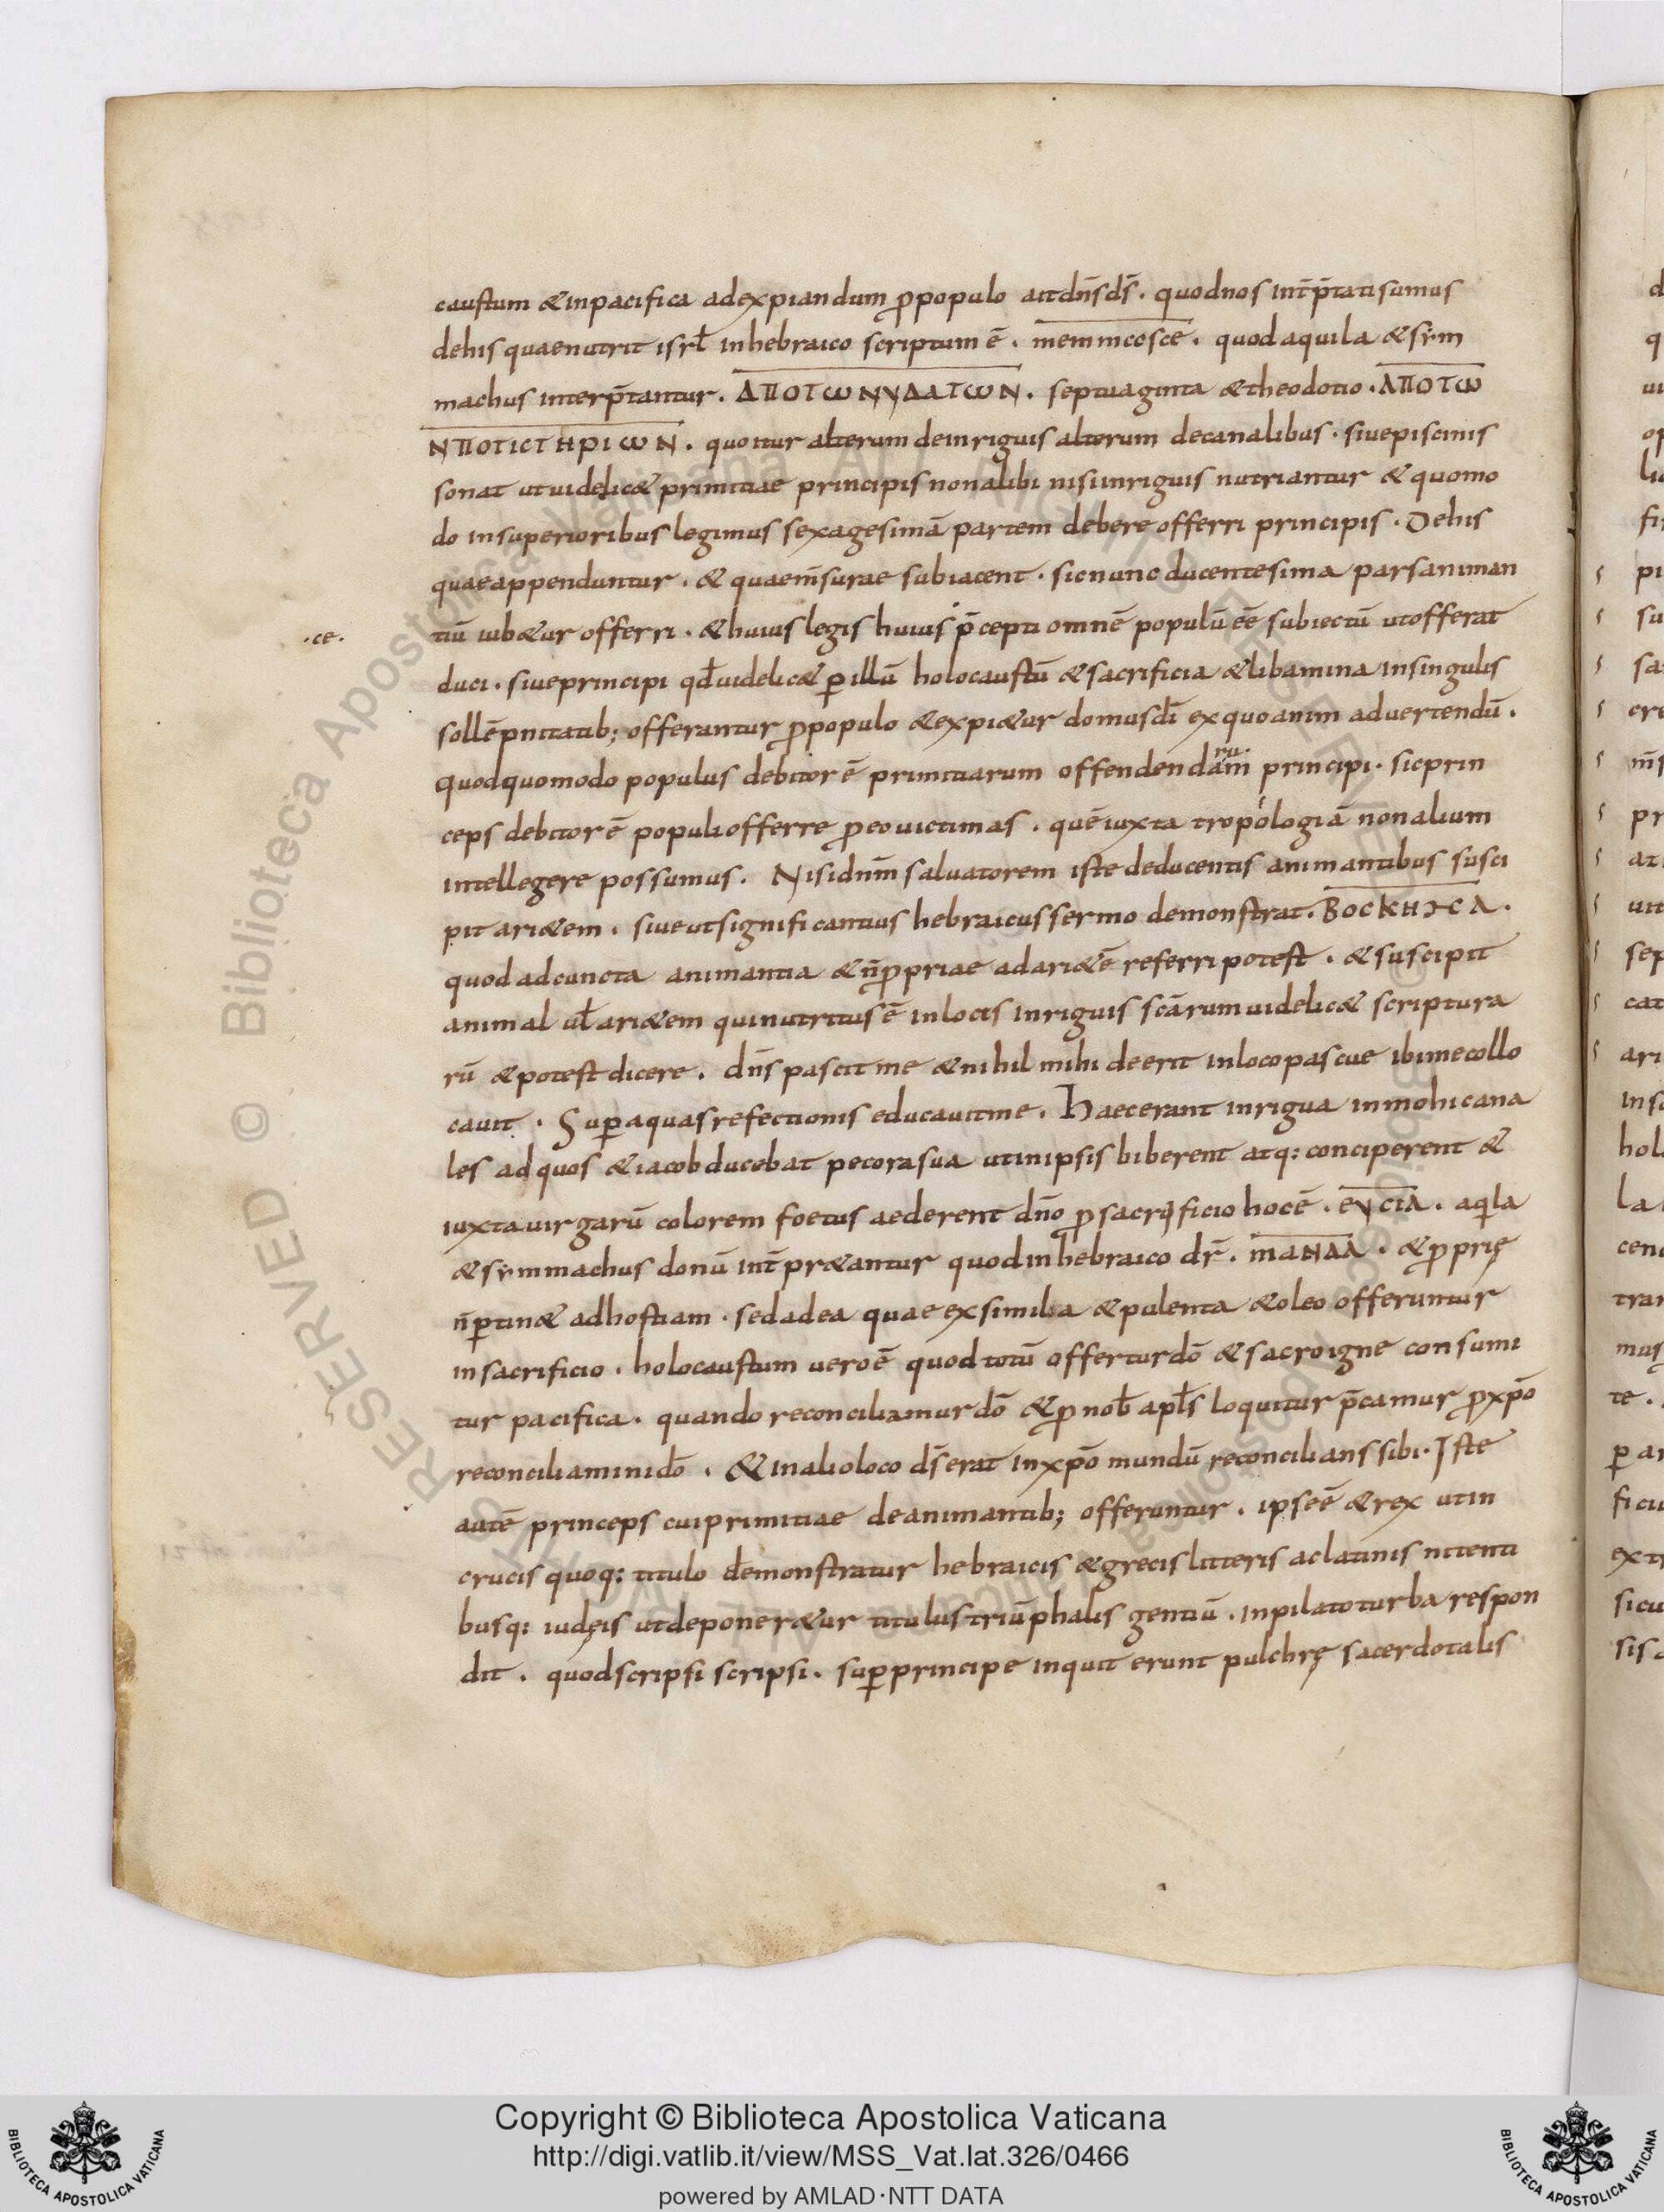 caustum &inpacifica adexpiandum ꝓpopulo aitdn̄sds̄. quodnos int̄p̄tatisumus
dehis quaenutrit isrł inhebraico scriptum ē. memmcosce. quodaquila &sym
machus interp̄tantur. ΑΠΟΤωΝΥΔΑΤωΝ. septuaginta &theodotio. ΑΠΟΤω
ΝΠΟΤΙCΤΗΡΙωΝ. quoitur alterum deinriguis alterum decanalibus. siuepiscinis
sonat utuidelic& primitiae principis nonalibi nisiinriguis nutriantur & quomo
do insuperioribus legimus sexagesimā partem debere offerri principis. Dehis
quaeappenduntur. & quaem̄surae subiacent. sicnunc ducentesima parsaniman
·ce· tiū iub&ur offerri. &huius legis huius p̄cepti omnē populū ēē subiectū utofferat
duci. siueprincipi qd̄uidelic& ꝑillū holocaustū &sacrificia &libamina insingulis
sollēpnitatib; offerantur ꝓpopulo &expi&ur domusdī exquoanim aduertendū.
quodquomodo populus debitor ē primitiarum offendendam̄ ru. principi. sicprin
ceps debitor ē populi offerre ꝓeo uictimas. quēiuxta tropologiā nonalium
intellegere possumus. Nisidn̄m saluatorem iste deducentis animantibus susci
pit ari&em. siueutsignificantius hebraicussermo demonstrat. ΒΟCΚΗϽCΑ.
quod adcuncta animantia &n̄ꝓpriae adari&ē referripotest. &suscipit
animal uł ari&em quinutritusē inlocis inriguis scārum uidelic& scriptura
rū &potest dicere. dn̄s pascit me &nihil mihi deerit inlocopascue ibimecollo
cauit. Suꝑaquasrefectionis educauitme. Haecerant inrigua inmohicana
les adquos &iacob ducebat pecorasua utinipsis biberent atq: conciperent &
iuxtauirgarū colorem foetus aederent dn̄o ꝓsacrificio hocē. ΘΥCΙΑ. aqila
&symmachus donū int̄pr&antur quodinhebraico dr̄. ΜΑΝΔΑ. &ꝓprię
n̄ꝑtin& adhostiam. sedadea quae exsimilia &pulenta &oleo offeruntur
insacrificio. holocaustum ueroē quod totū offerturdō &sacroigne consumi
tur pacifica. quando reconciliamurdō &ꝓnob̄ apłs loquitur p̄camur ꝓxp̄o
reconciliaminidō. &inalioloco ds̄erat inxp̄o mundū reconcilians sibi. Iste
autē princeps cuiprimitiae deanimantib; offeruntur. ipseē &rex utin
crucis quoq: titulo demonstratur hebraicis &grecis litteris aclatinis nitenti
busq: iudęis utdeponer&ur titulus triūphalis gentiū. inpilatoturba respon
dit. quodscripsi scripsi. suꝑprincipe inquit erunt pulchrę sacerdotalis
Copyright © Biblioteca Apostolica Vaticana
http://digi.vatlib.it/view/MSS_Vat.lat.326/0466
powered by AMLAD·NTT DATA